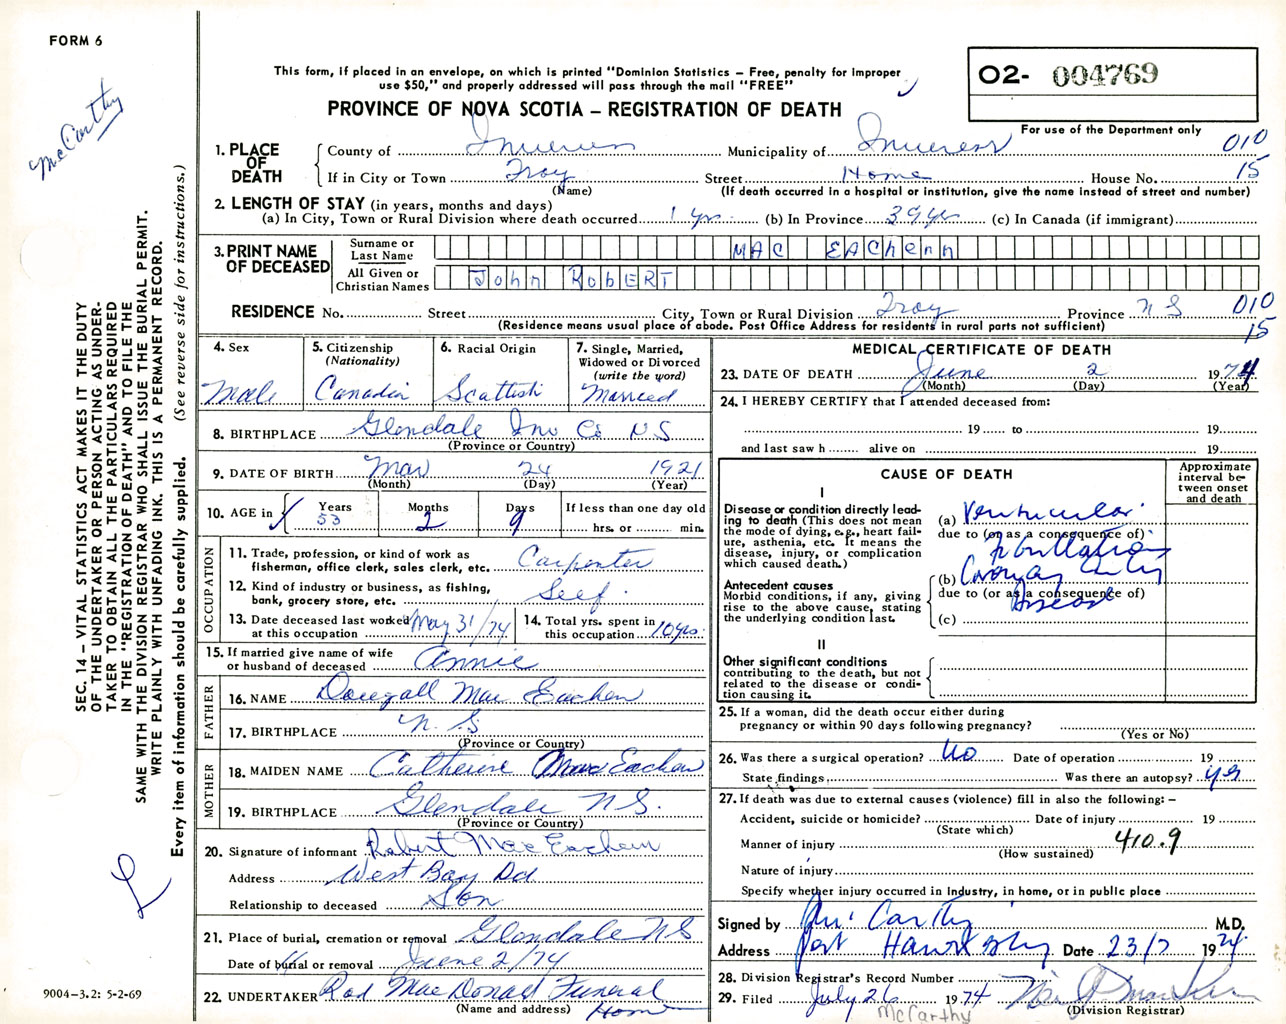 FORM 6
McCarthy
This form, if placed in an envelope, on which is printed "Dominion Statistics – Free, penalty for improper
use $50," and properly addressed will pass through the mail "FREE"
PROVINCE OF NOVA SCOTIA – REGISTRATION OF DEATH
O2- 004769
For use of the Department only
1. PLACE OF DEATH
County of Inverness Municipality of Inverness 010
If in City or Town Troy Street Home House No. 15
(Name) (If death occurred in a hospital or institution, give the name instead of street and number)
2. LENGTH OF STAY (in years, months and days)
(a) In City, Town or Rural Division where death occurred 1 yrs (b) In Province 39 yrs (c) In Canada (if immigrant)
3. PRINT NAME OF DECEASED
Surname or Last Name MAC EAChern
All Given or Christian Names John RobERT
RESIDENCE No. Street City, Town or Rural Division Troy Province N S 010
(Residence means usual place of abode. Post Office Address for residents in rural parts not sufficient) 15
4. Sex
Male
5. Citizenship
(Nationality)
Canadian
6. Racial Origin
Scottish
7. Single, Married,
Widowed or Divorced
(write the word)
Married
8. BIRTHPLACE Glendale Inv Co N S
(Province or Country)
9. DATE OF BIRTH Mar 24 1921
(Month) (Day) (Year)
10. AGE in
Years Months Days If less than one day old
53 2 9 hrs. or min.
OCCUPATION
11. Trade, profession, or kind of work as
fisherman, office clerk, sales clerk, etc. Carpenter
12. Kind of industry or business, as fishing,
bank, grocery store, etc. Self
13. Date deceased last worked
at this occupation May 31/74
14. Total yrs. spent in
this occupation 10 yrs.
15. If married give name of wife
or husband of deceased Annie
FATHER
16. NAME Dougall Mac Eachern
17. BIRTHPLACE N. S
(Province or Country)
MOTHER
18. MAIDEN NAME Catherine Mac Eachern
19. BIRTHPLACE Glendale N S.
(Province or Country)
20. Signature of informant Robert Mac Eachern
Address West Bay Rd
Relationship to deceased Son
21. Place of burial, cremation or removal Glendale N S
Date of burial or removal June 2/74
22. UNDERTAKER Rod MacDonald Funeral
(Name and address) Home
MEDICAL CERTIFICATE OF DEATH
23. DATE OF DEATH June 2 1974
(Month) (Day) (Year)
24. I HEREBY CERTIFY that I attended deceased from:
19 to 19
and last saw h alive on 19
CAUSE OF DEATH
Approximate
interval be-
tween onset
and death
I
Disease or condition directly lead-
ing to death (This does not mean
the mode of dying, e.g., heart fail-
ure, asthenia, etc. It means the
disease, injury, or complication
which caused death.)
(a) Ventricular
due to (or as a consequence of)
Fibrillation
Antecedent causes
Morbid conditions, if any, giving
rise to the above cause, stating
the underlying condition last.
(b) Coronary Artery
due to (or as a consequence of)
Disease
(c)
II
Other significant conditions
contributing to the death, but not
related to the disease or condi-
tion causing it.
25. If a woman, did the death occur either during
pregnancy or within 90 days following pregnancy?
(Yes or No)
26. Was there a surgical operation? No Date of operation 19
State findings, Was there an autopsy? yes
27. If death was due to external causes (violence) fill in also the following: –
Accident, suicide or homicide? Date of injury 19
(State which)
Manner of injury 410.9
(How sustained)
Nature of injury
Specify whether injury occurred in Industry, in home, or in public place
Signed by McCarthy M.D.
Address Port Hawkesbury Date 23/7 1974
28. Division Registrar's Record Number
29. Filed July 26 1974
McCarthy
(Division Registrar)
SEC. 14 – VITAL STATISTICS ACT MAKES IT THE DUTY
OF THE UNDERTAKER OR PERSON ACTING AS UNDER-
TAKER TO OBTAIN ALL THE PARTICULARS REQUIRED
IN THE "REGISTRATION OF DEATH" AND TO FILE THE
SAME WITH THE DIVISION REGISTRAR WHO SHALL ISSUE THE BURIAL PERMIT.
WRITE PLAINLY WITH UNFADING INK. THIS IS A PERMANENT RECORD.
Every item of information should be carefully supplied. (See reverse side for instructions.)
9004-3.2: 5-2-69